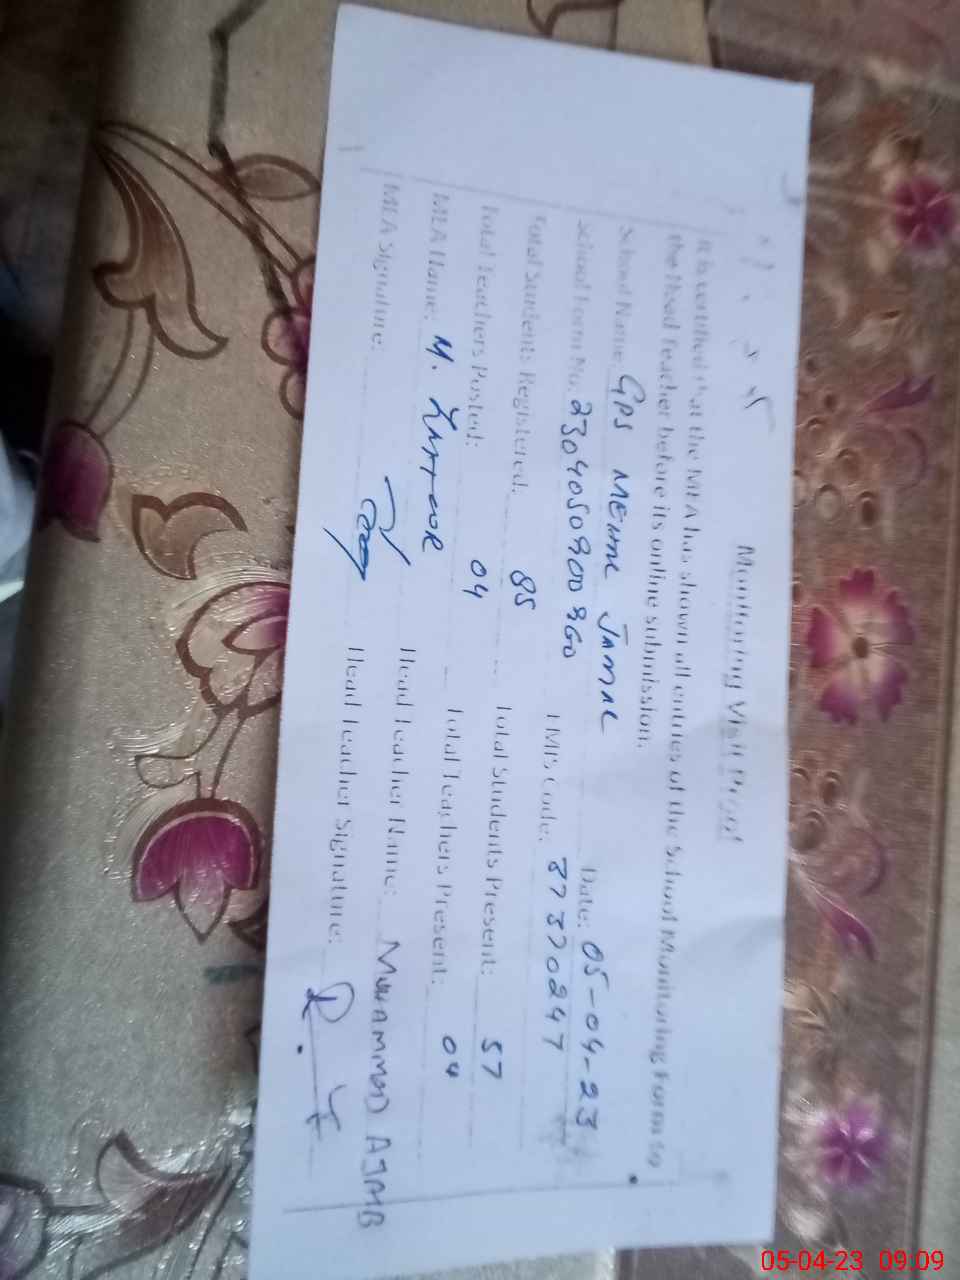 Monitoring Visit Proof
It is certified that the MEA has shown all entries of the School Monitoring Form to
the Head Teacher before its online submission.
School Name: GPS MEHNE JAMAL Date: 05-04-23
School Form No. 230405090 EMIS Code: 37370247
Total Students Registered: 85 Total Students Present: 57
Total Teachers Posted: 04 Total Teachers Present: 04
MEA Name: M. Head Teacher Name: MUHAMMAD
MEA Signature: Head Teacher Signature:
05-04-23 09:09